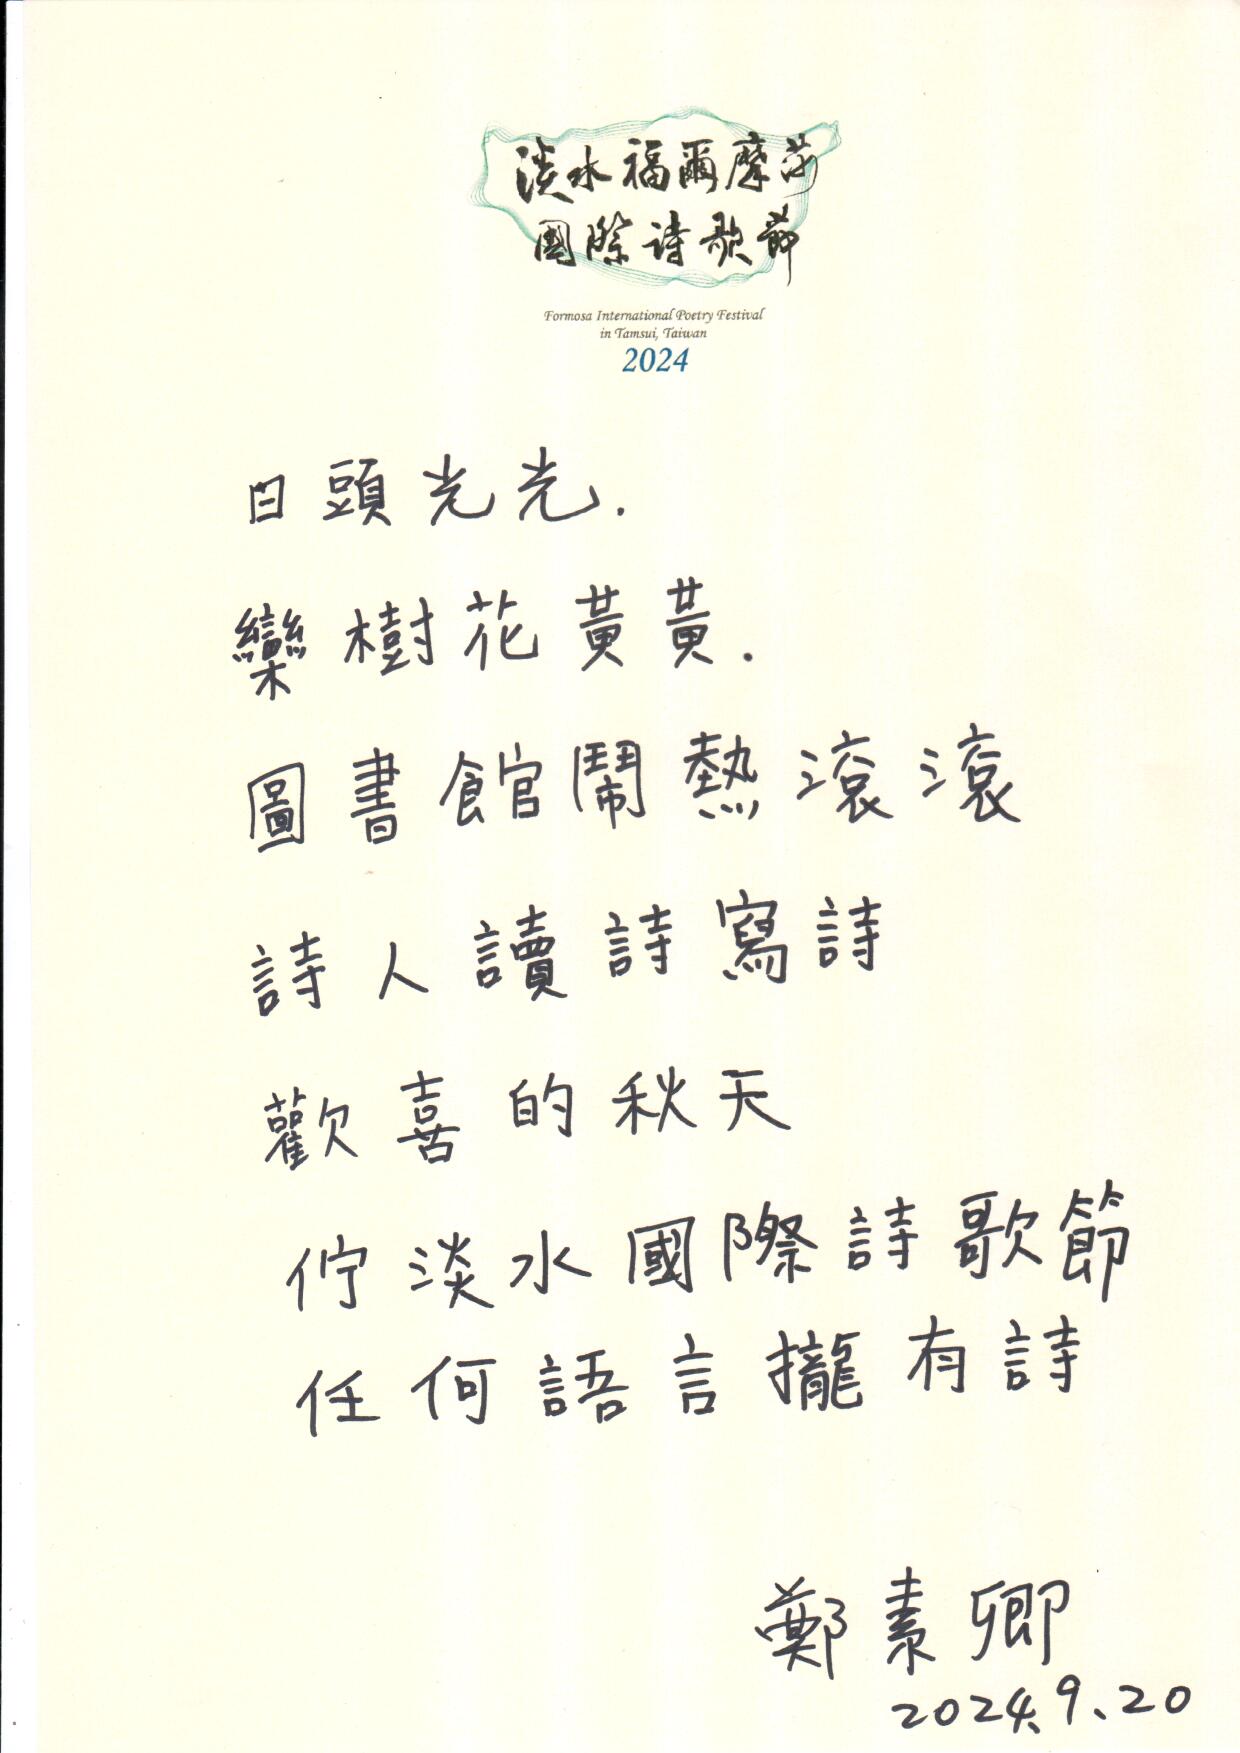 淡水福爾摩莎
國際詩歌節
Formosa International Poetry Festival
in Tamsui, Taiwan
2024
日頭光光.
欒樹花黃黃.
圖書館鬧熱滾滾
詩人讀詩寫詩
歡喜的秋天
佇淡水國際詩歌節
任何語言攏有詩
鄭素卿
2024.9.20